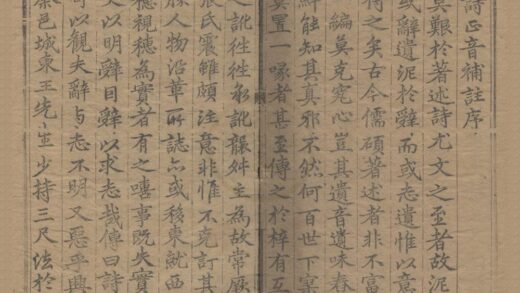 詩正音補註序
莫艱於著述詩尤文之至者故泥
或辭遺泥於辭而或志遺惟以意
得之矣古今儒碩著述者非不富
編莫克究心豈其遺音遺味
鮮能知其真邪不然何百世下寥
莫置一喙者甚至傳之於梓有互
又訛徃徃承訛襲舛主為故常厥
張氏震雖頗注意非惟不克訂其
脉人物沿革所誌亦或移東就西
穗視穗為實者有之嘻事既失實
文以明辭因辭以求志哉傳曰詩
可以觀失辭与志不明又惡乎興
秦邑城東王先生少持三尺法於